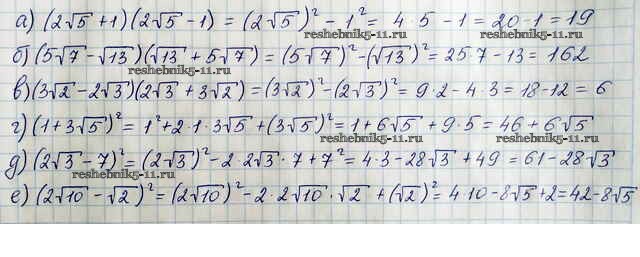 а) (2√5 + 1)(2√5 - 1) = (2√5)² - 1² = 4·5 - 1 = 20 - 1 = 19
б) (5√7 - √13)(√13 + 5√7) = (5√7)² - (√13)² = 25·7 - 13 = 162
reshebnik5-11.ru reshebnik5-11.ru
в) (3√2 - 2√3)(2√3 + 3√2) = (3√2)² - (2√3)² = 9·2 - 4·3 = 18 - 12 = 6
г) (1 + 3√5)² = 1² + 2·1·3√5 + (3√5)² = 1 + 6√5 + 9·5 = 46 + 6√5
reshebnik5-11.ru
д) (2√3 - 7)² = (2√3)² - 2·2√3·7 + 7² = 4·3 - 28√3 + 49 = 61 - 28√3
reshebnik5-11.ru
е) (2√10 - √2)² = (2√10)² - 2·2√10·√2 + (√2)² = 4·10 - 8√5 + 2 = 42 - 8√5